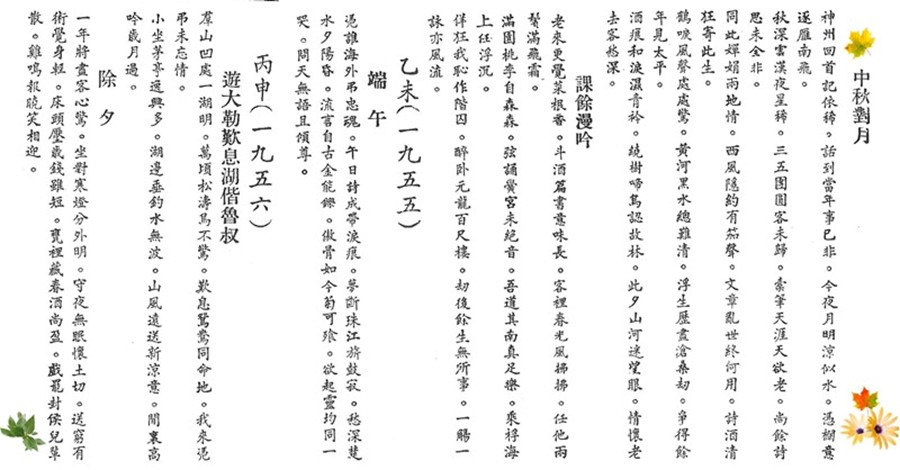 中秋對月
神州回首記依稀。話到當年事已非。今夜月明涼似水。憑欄意
逐雁南飛。
秋深雲漢夜星稀。三五團圓客未歸。索筆天涯天欲老。尚餘詩
思未全非。
同此嬋娟兩地情。西風隱約有笳聲。文章亂世終何用。詩酒清
狂寄此生。
鶴唳風聲處處驚。黃河黑水總難清。浮生歷盡滄桑劫。爭得餘
年見太平。
酒痕和淚濕青衿。繞樹啼烏認故林。此夕山河迷望眼。情懷老
去客愁深。
課餘漫吟
老來更覺菜根香。斗酒篇書意味長。客裡春光風拂拂。任他兩
鬢滿飛霜。
滿園桃李自森森。弦誦黌宮未絕音。吾道其南真足樂。乘桴海
上任浮沉。
佯狂我恥作階囚。醉臥元龍百尺樓。劫後餘生無所事。一觴一
詠亦風流。
乙未(一九五五)
端午
憑誰海外弔忠魂。午日詩成帶淚痕。夢斷珠江旂鼓寂。愁深楚
水夕陽昏。流言自古金能鑠。傲骨如今菊可飧。欲起靈均同一
哭。問天無語且傾尊。
丙申(一九五六)
遊大勒歎息湖偕魯叔
羣山凹處一湖明。萬頃松濤鳥不驚。歎息鴛鴦同命地。我來憑
弔未忘情。
小坐茅亭逸興多。湖邊垂釣水無波。山風遠送新涼意。閒裏高
吟歲月過。
除夕
一年將盡客心驚。坐對寒燈分外明。守夜無眠懷土切。送窮有
術覺身輕。床頭壓歲錢雖短。甕裡藏春酒尚盈。戲罷封侯兒輩
散。雞鳴報曉笑相迎。